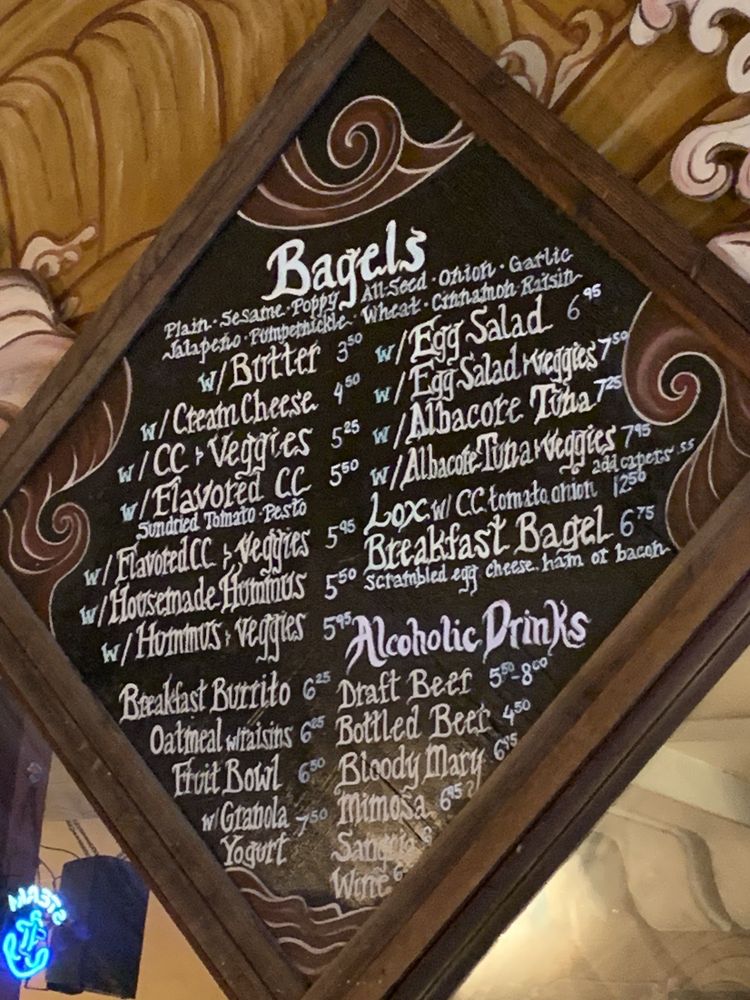 Bagels
Plain · Sesame · Poppy · All-Seed · Onion · Garlic
Jalapeño · Pumpernickle · Wheat · Cinnamon Raisin
w/Butter 3.50
w/Cream Cheese 4.50
w/CC + Veggies 5.25
w/Flavored CC 5.50
Sundried Tomato · Pesto
w/Flavored CC + Veggies 5.95
w/Housemade Hummus 5.50
w/Hummus + Veggies 5.95
Breakfast Burrito 6.25
Oatmeal w/raisins
Fruit Bowl 6.50
w/Granola 7.50
Yogurt
w/Egg Salad 6.95
w/Egg Salad + Veggies 7.50
w/Albacore Tuna 7.25
w/Albacore Tuna + Veggies 7.95
add capers .55
Lox w/ CC, tomato, onion 12.50
Breakfast Bagel 6.75
scrambled egg, cheese, ham or bacon
Alcoholic Drinks
Draft Beer 5.50-8.00
Bottled Beer 4.50
Bloody Mary 6.95
Mimosa 6.95
Sangria
Wine
STEAM